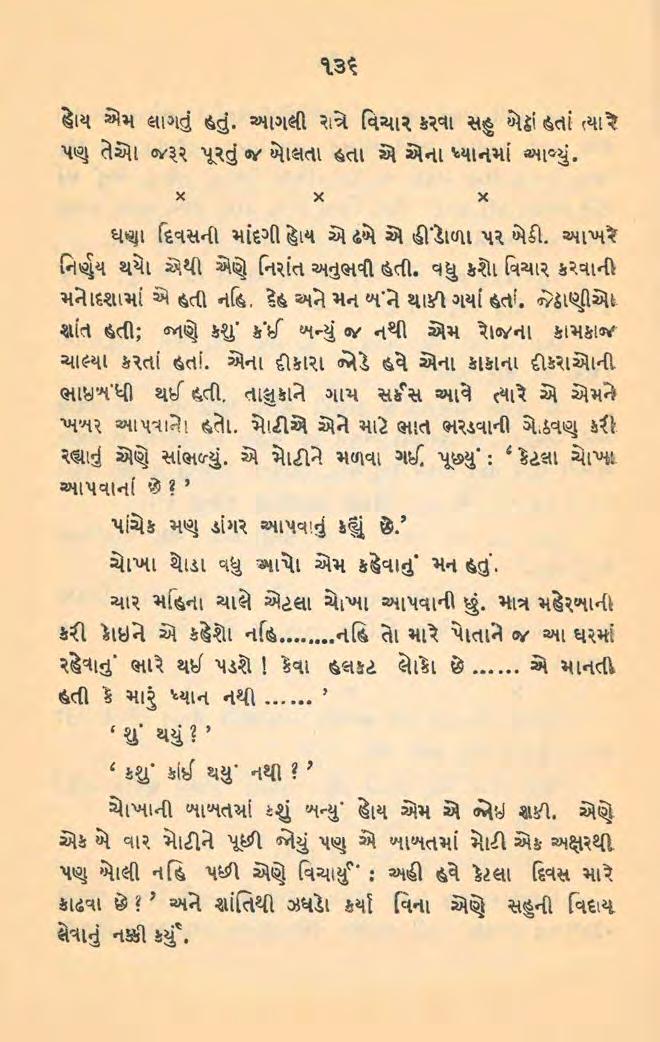 ૧૩૬
હોય એમ લાગતું હતું. આગલી રાત્રે વિચાર કરવા સહુ બેઠાં હતાં ત્યારે
પણ તેઓ જરૂર પૂરતું જ બોલતા હતા એ એના ધ્યાનમાં આવ્યું.
× × ×
ઘણા દિવસની માંદગી હોય એ ઢબે એ હીંડોળા પર બેઠી. આખરે
નિર્ણય થયો એથી એણે નિરાંત અનુભવી હતી. વધુ કશો વિચાર કરવાની
મનોદશામાં એ હતી નહિ. દેહ અને મન બંને થાકી ગયાં હતાં. જેઠાણીઓ
શાંત હતી; જાણે કશું કંઈ બન્યું જ નથી એમ રોજના કામકાજ
ચાલ્યા કરતાં હતાં. એના દીકારા જોડે હવે એના કાકાના દીકરાઓની
ભાઇબંધી થઈ હતી. તાલુકાને ગામ સર્કસ આવે ત્યારે એ એમને
ખબર આપવાનો હતો. મોટીએ એને માટે ભાત ભરડવાની ગોઠવણ કરી
રહ્યાનું એણે સાંભળ્યું. એ મોટીને મળવા ગઈ, પૂછ્યું : ‘ કેટલા ચોખા
આપવાનાં છે ? ’
પાંચેક મણ ડાંગર આપવાનું કહ્યું છે.’
ચોખા થોડા વધુ આપો એમ કહેવાનું મન હતું.
ચાર મહિના ચાલે એટલા ચોખા આપવાની છું. માત્ર મહેરબાની
કરી કોઇને એ કહેશો નહિ........નહિ તો મારે પોતાને જ આ ઘરમાં
રહેવાનું ભારે થઈ પડશે ! કેવા હલકટ લોકો છે ...... એ માનતી
હતી કે મારું ધ્યાન નથી ...... ’
‘ શું થયું ? ’
‘ કશું કાંઈ થયું નથી ? ’
ચોખાની બાબતમાં કશું બન્યું હોય એમ એ જોઇ શકી. એણે
એક બે વાર મોટીને પૂછી જોયું પણ એ બાબતમાં મોટી એક અક્ષરથી
પણ બોલી નહિ પછી એણે વિચાર્યું : અહી હવે કેટલા દિવસ મારે
કાઢવા છે ? ’ અને શાંતિથી ઝઘડો કર્યા વિના એણે સહુની વિદાય
લેવાનું નક્કી કર્યું.